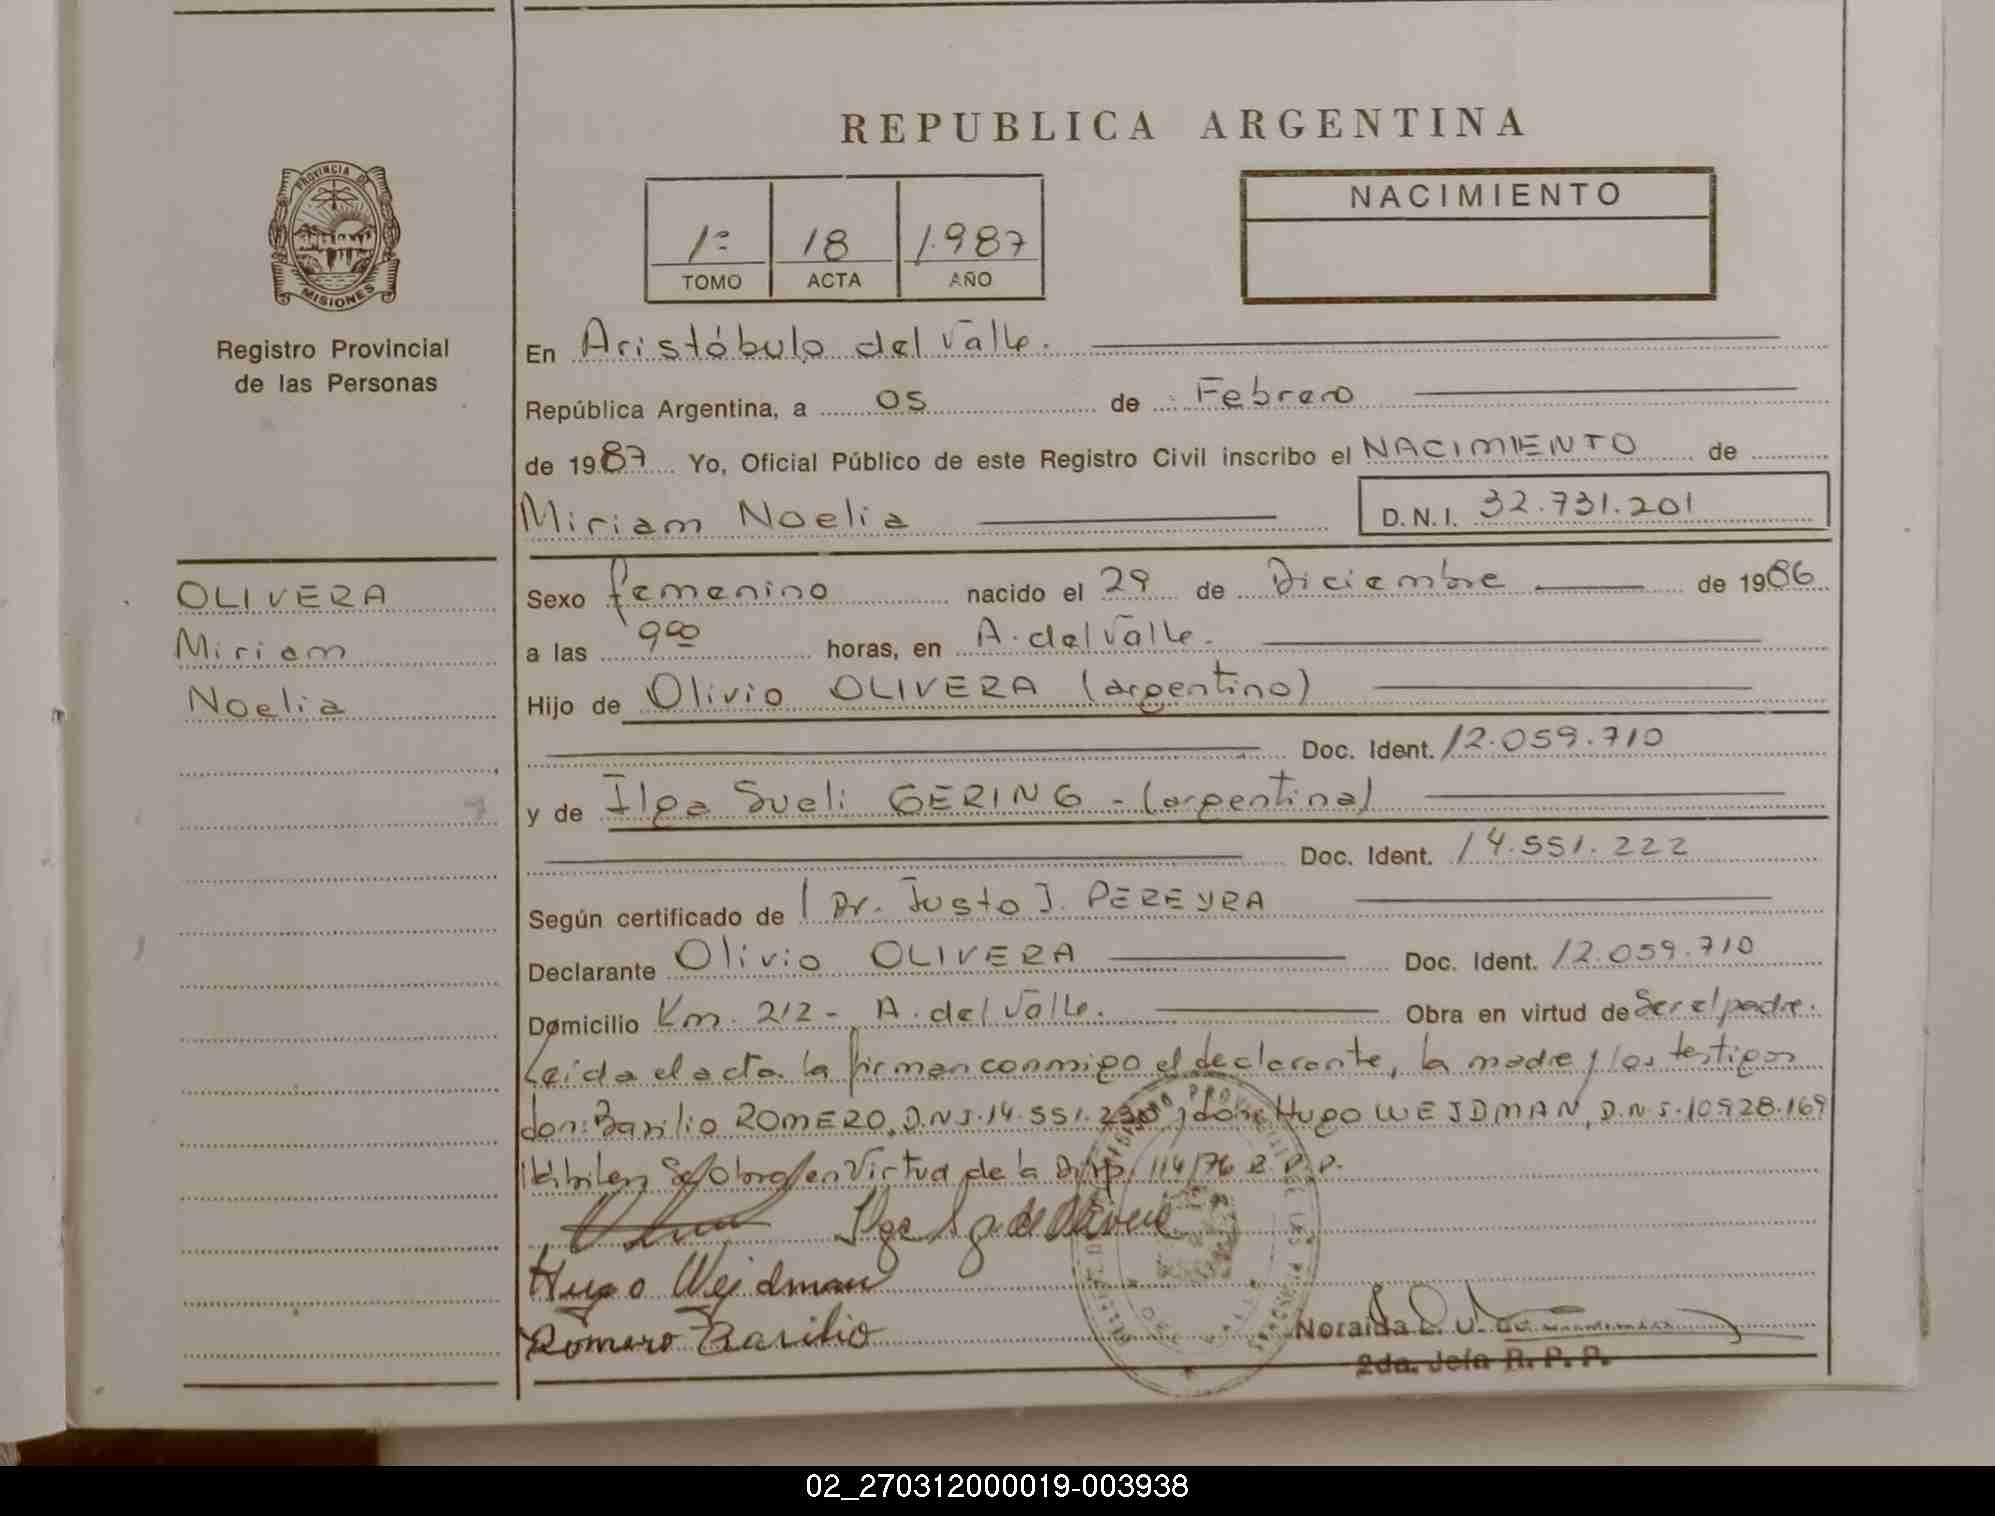 REPUBLICA ARGENTINA
PROVINCIA DE
MISIONES
Registro Provincial
de las Personas
1º 18 1.987
TOMO ACTA AÑO
NACIMIENTO
En Aristóbulo del Valle.
República Argentina, a 05 de Febrero
de 1987 Yo, Oficial Público de este Registro Civil inscribo el NACIMIENTO de
Miriam Noelia D.N.I. 32.731.201
OLIVERA
Miriam
Noelia
Sexo femenino nacido el 29 de Diciembre de 1986
a las 9 00 horas, en A. del Valle.
Hijo de Olivio OLIVERA (argentino)
Doc. Ident. 12.059.710
y de Ilga Sueli GERING - (argentina)
Doc. Ident. 14.551.222
Según certificado de Dr. Justo J. PEREYRA
Declarante Olivio OLIVERA Doc. Ident. 12.059.710
Domicilio Km. 212 - A. del Valle. Obra en virtud de Ser el padre.
Leida el acta la firman conmigo el declarante, la madre y los testigos
don: Basilio ROMERO, D.N.I. 14.551.230 y don: Hugo WEJDMAN, D.N.I. 10.928.169
en Virtud de la Disp. 114/76 R.P.P.
Hugo Wejdman
Romero Basilio
Noraida
2da. Jefa R. P. P.
02_270312000019-003938